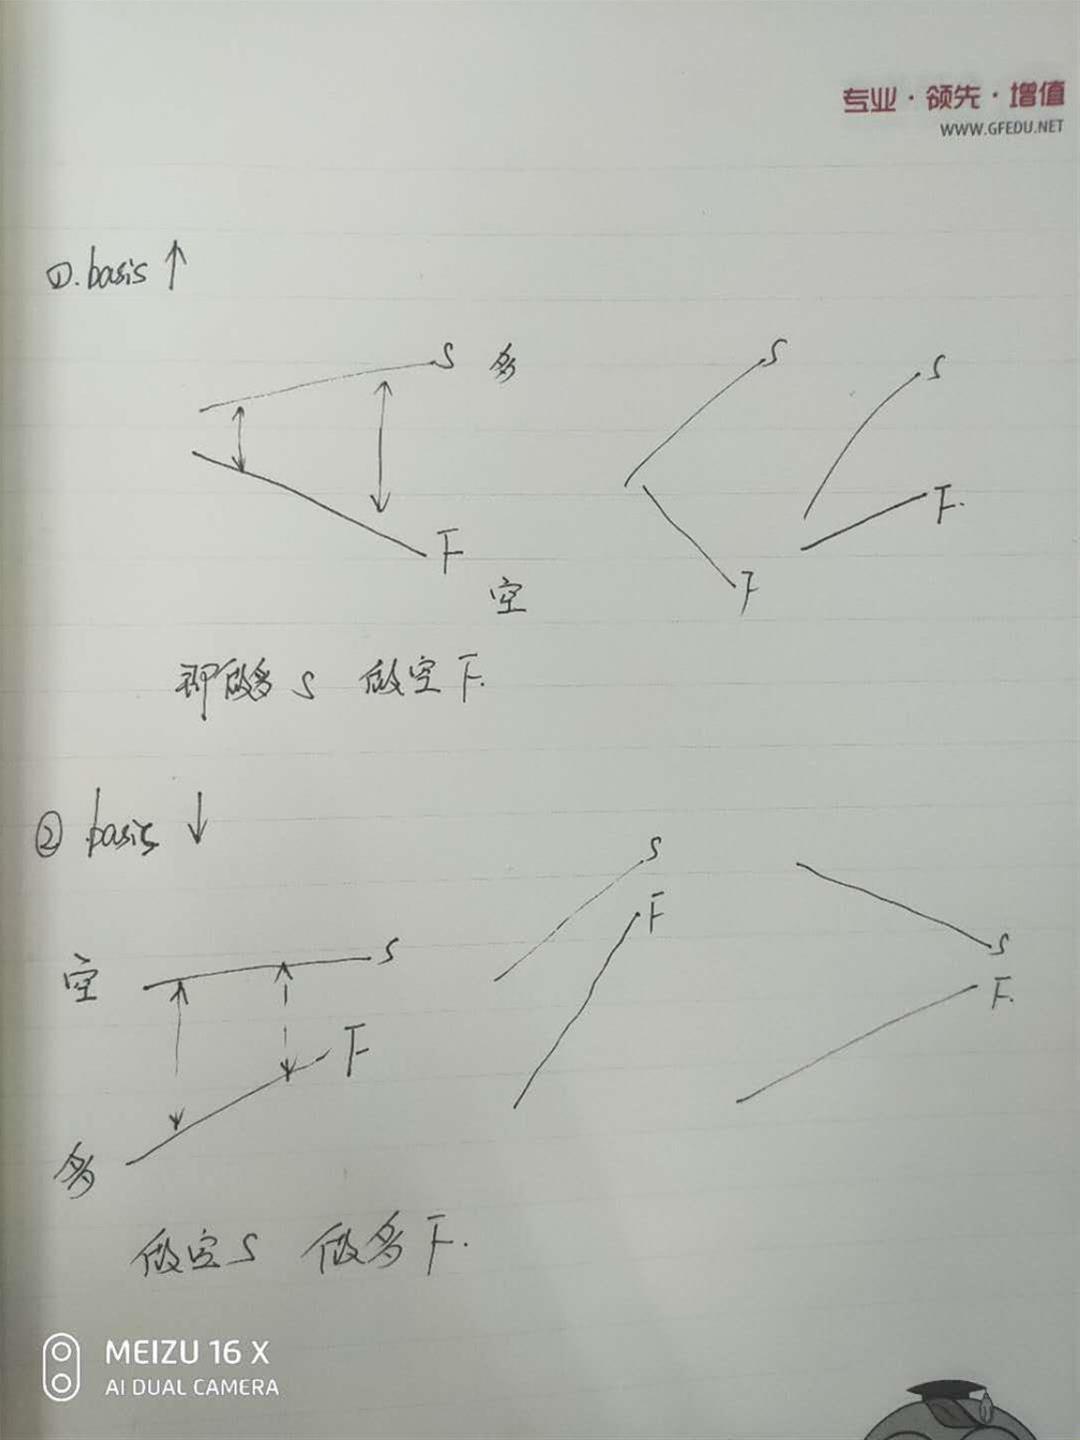 专业·领先·增值
WWW.GFEDU.NET
①.basis ↑
S 多
F
空
S
F
S
F.
即做多 S 做空 F.
② basis ↓
空
S
F
多
S
F
S
F.
做空 S 做多 F.
MEIZU 16 X
AI DUAL CAMERA